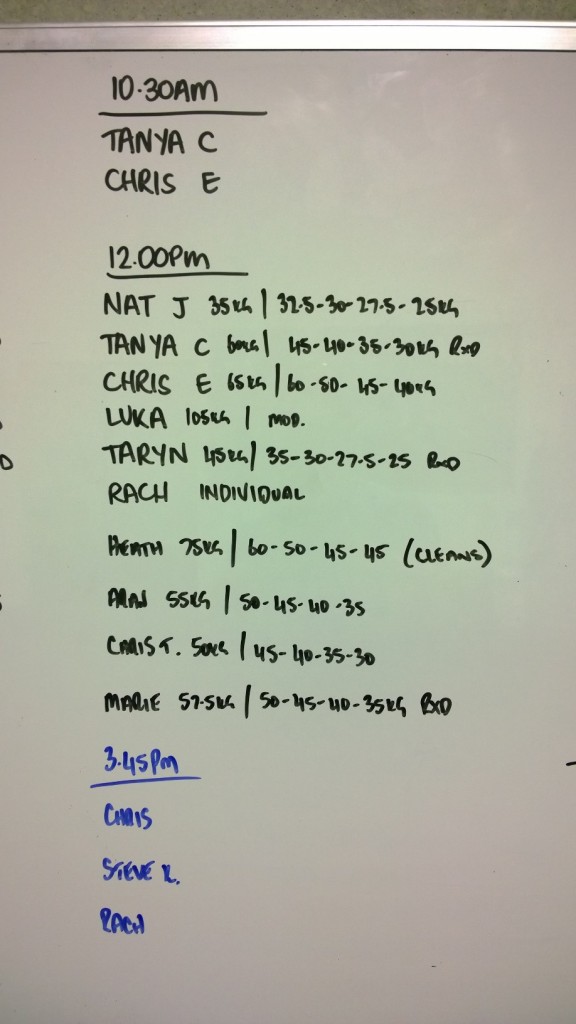 10.30AM
TANYA C
CHRIS E
12.00PM
NAT J 35KG | 32.5-30-27.5-25KG
TANYA C 60KG | 45-40-35-30KG RXD
CHRIS E 65KG | 60-50-45-40KG
LUKA 105KG | MOD.
TARYN 45KG | 35-30-27.5-25 RXD
RACH INDIVIDUAL
HEATH 75KG | 60-50-45-45 (CLEANS)
55KG | 50-45-40-35
CHRIS T. 50KG | 45-40-35-30
MARIE 57.5KG | 50-45-40-35KG RXD
3.45PM
CHRIS
STEVE
RACH